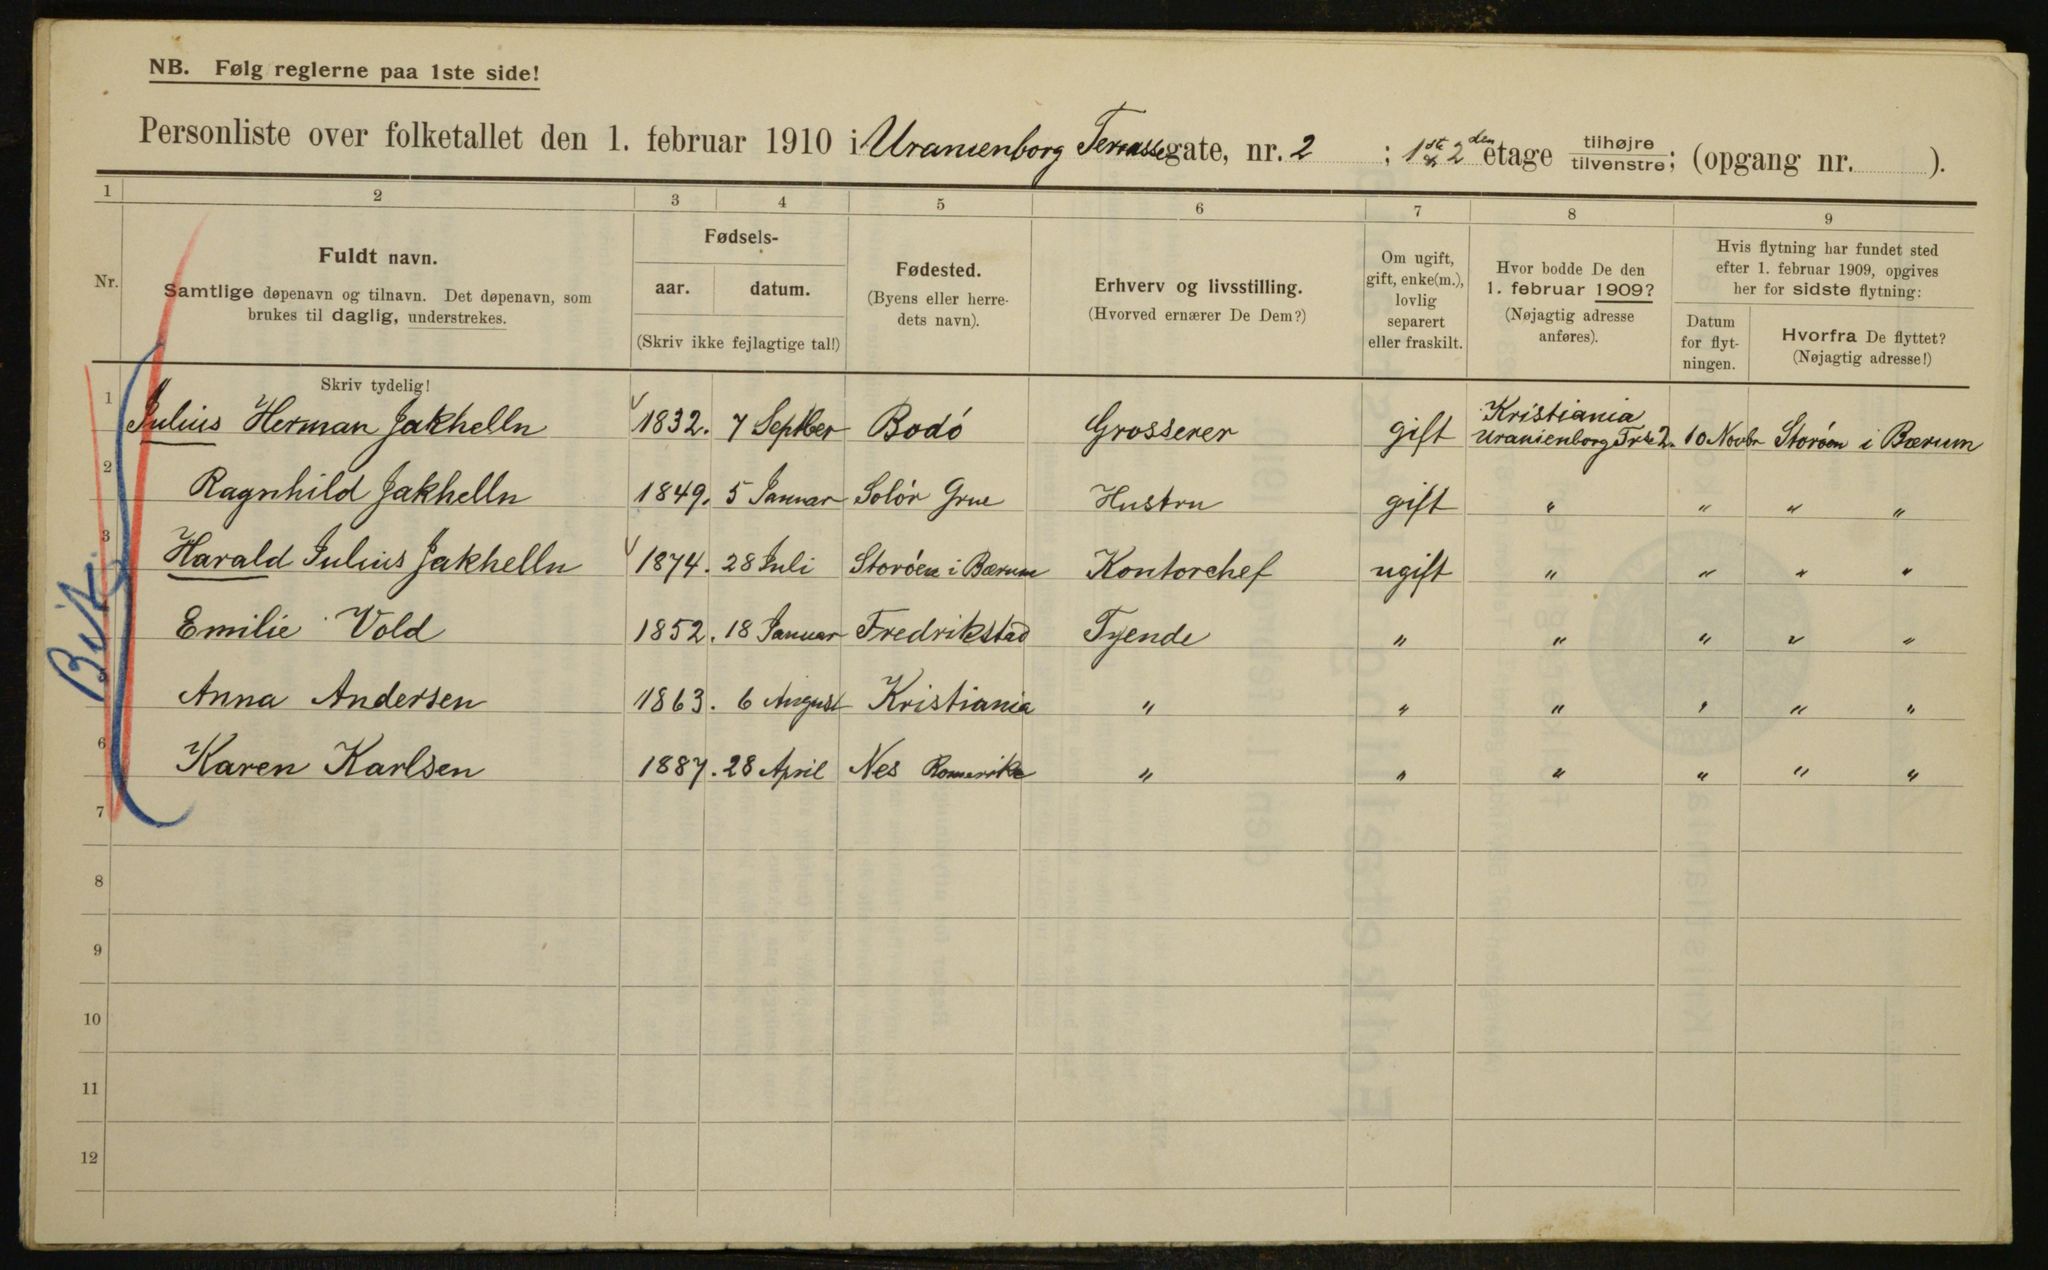 NB. Følg reglerne paa 1ste side!
Personliste over folketallet den 1. februar 1910 i Uranienborg Terrassegate, nr. 2 ; 1ste & 2den etage tilhøjre tilvenstre; (opgang nr. ).
1 2 3 4 5 6 7 8 9
Nr.
Fuldt navn.
Samtlige døpenavn og tilnavn. Det døpenavn, som
brukes til daglig, understrekes.
Skriv tydelig!
Fødsels-
aar. datum.
(Skriv ikke fejlagtige tal!)
Fødested.
(Byens eller herre-
dets navn).
Erhverv og livsstilling.
(Hvorved ernærer De Dem?)
Om ugift,
gift, enke(m.),
lovlig
separert
eller fraskilt.
Hvor bodde De den
1. februar 1909?
(Nøjagtig adresse
anføres).
Hvis flytning har fundet sted
efter 1. februar 1909, opgives
her for sidste flytning:
Datum
for flyt-
ningen.
Hvorfra De flyttet?
(Nøjagtig adresse!)
1 Julius Herman Jakhelln 1832. 7 Septber Bodó Grosserer gift Kristiania Uranienborg Trse 2. 10 Novbr Storöen i Bærum
2 Ragnhild Jakhelln 1849. 5 Januar Solör Grue Hustru gift " " " "
3 Harald Julius Jakhelln 1874. 28 Juli Storöen i Bærum Kontorchef ugift " " " "
Emilie Vold 1852. 18 Januar Fredrikstad Tjende " " " " "
Anna Andersen 1863. 6 August Kristiania " " " " " "
6 Karen Karlsen 1887. 28 April Nes Romerike " " " " " "
7
8
9
10
11
12